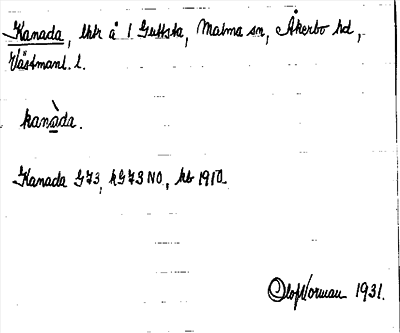 Kanada, lht å 1 Guttsta, Malma sn, Åkerbo hd,
Västmanl. l.
kanàda.
Kanada G73, hG73 NO, hb 1910
Olof Norman 1931.